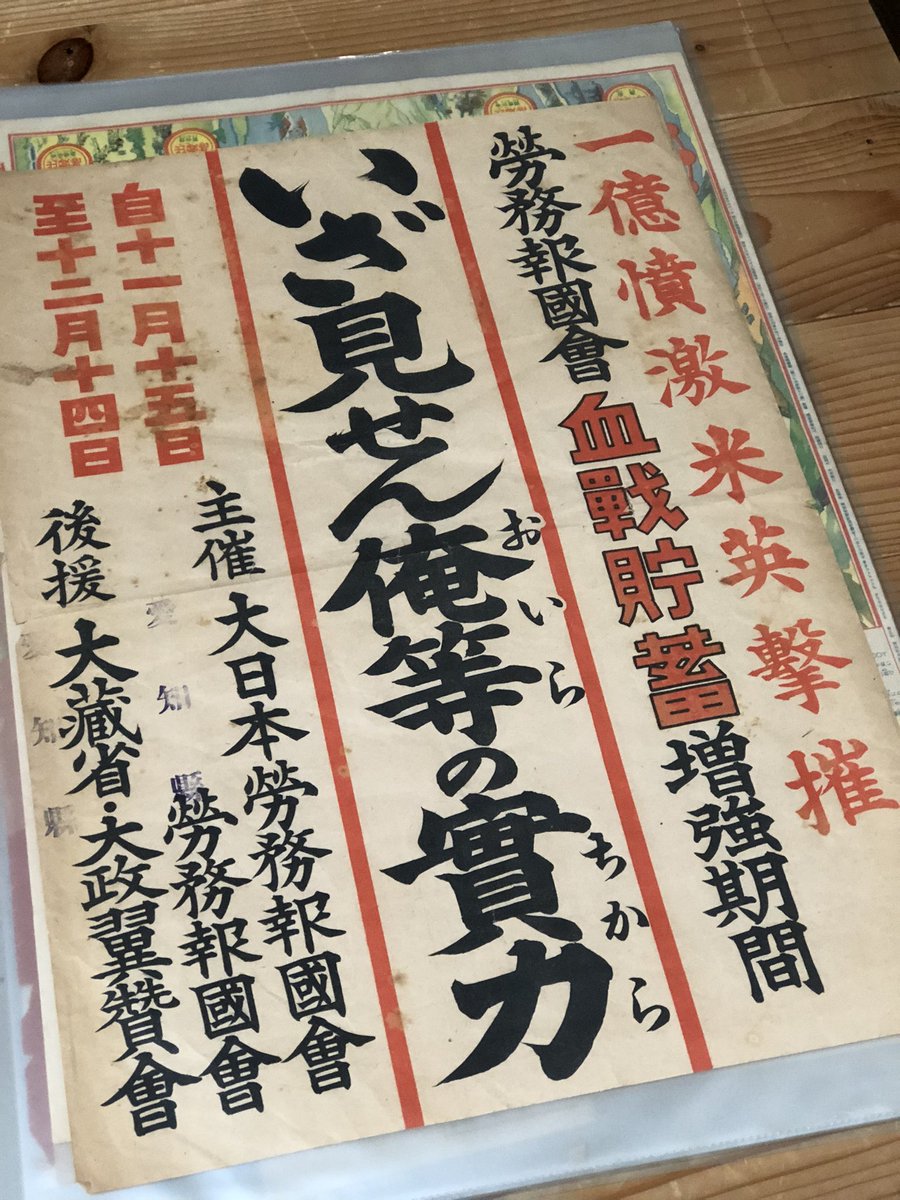 一億憤激米英擊摧
勞務報國會血戰貯蓄增強期間
いざ見せん俺等の實力
おいら
ちから
自十一月十五日
至十二月十四日
主催 大日本勞務報國會
愛知縣勞務報國會
後援 大藏省・大政翼贊會
愛知縣